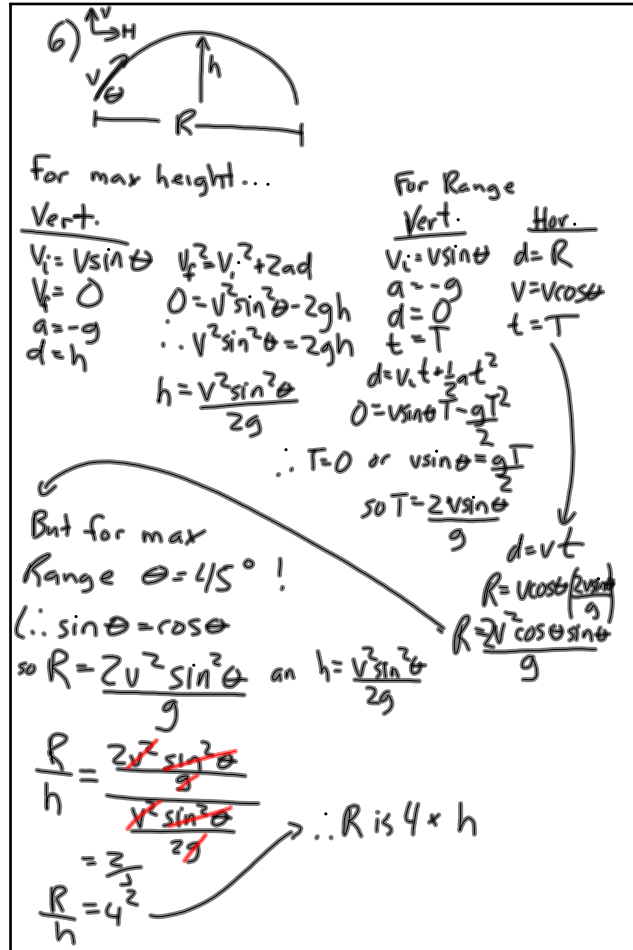 6) V
H
V
θ
h
R
For max height...
Vert.
Vi = Vsinθ
Vf = 0
a = -g
d = h
Vf² = Vi² + 2ad
0 = V²sin²θ - 2gh
∴ V²sin²θ = 2gh
h = V²sin²θ / 2g
For Range
Vert.
Vi = Vsinθ
a = -g
d = 0
t = T
d = Vit + ½at²
0 = VsinθT - gT²/2
∴ T = 0 or vsinθ = gT/2
so T = 2vsinθ/g
Hor.
d = R
V = Vcosθ
t = T
d = vt
R = Vcosθ(2vsinθ/g)
R = 2V²cosθsinθ/g
But for max
Range θ = 45° !
(∴ sinθ = cosθ
so R = 2v²sin²θ/g an h = V²sin²θ/2g
R/h = (2v² sin²θ/g) / (v² sin²θ/2g)
R/h = 4
∴ R is 4 × h